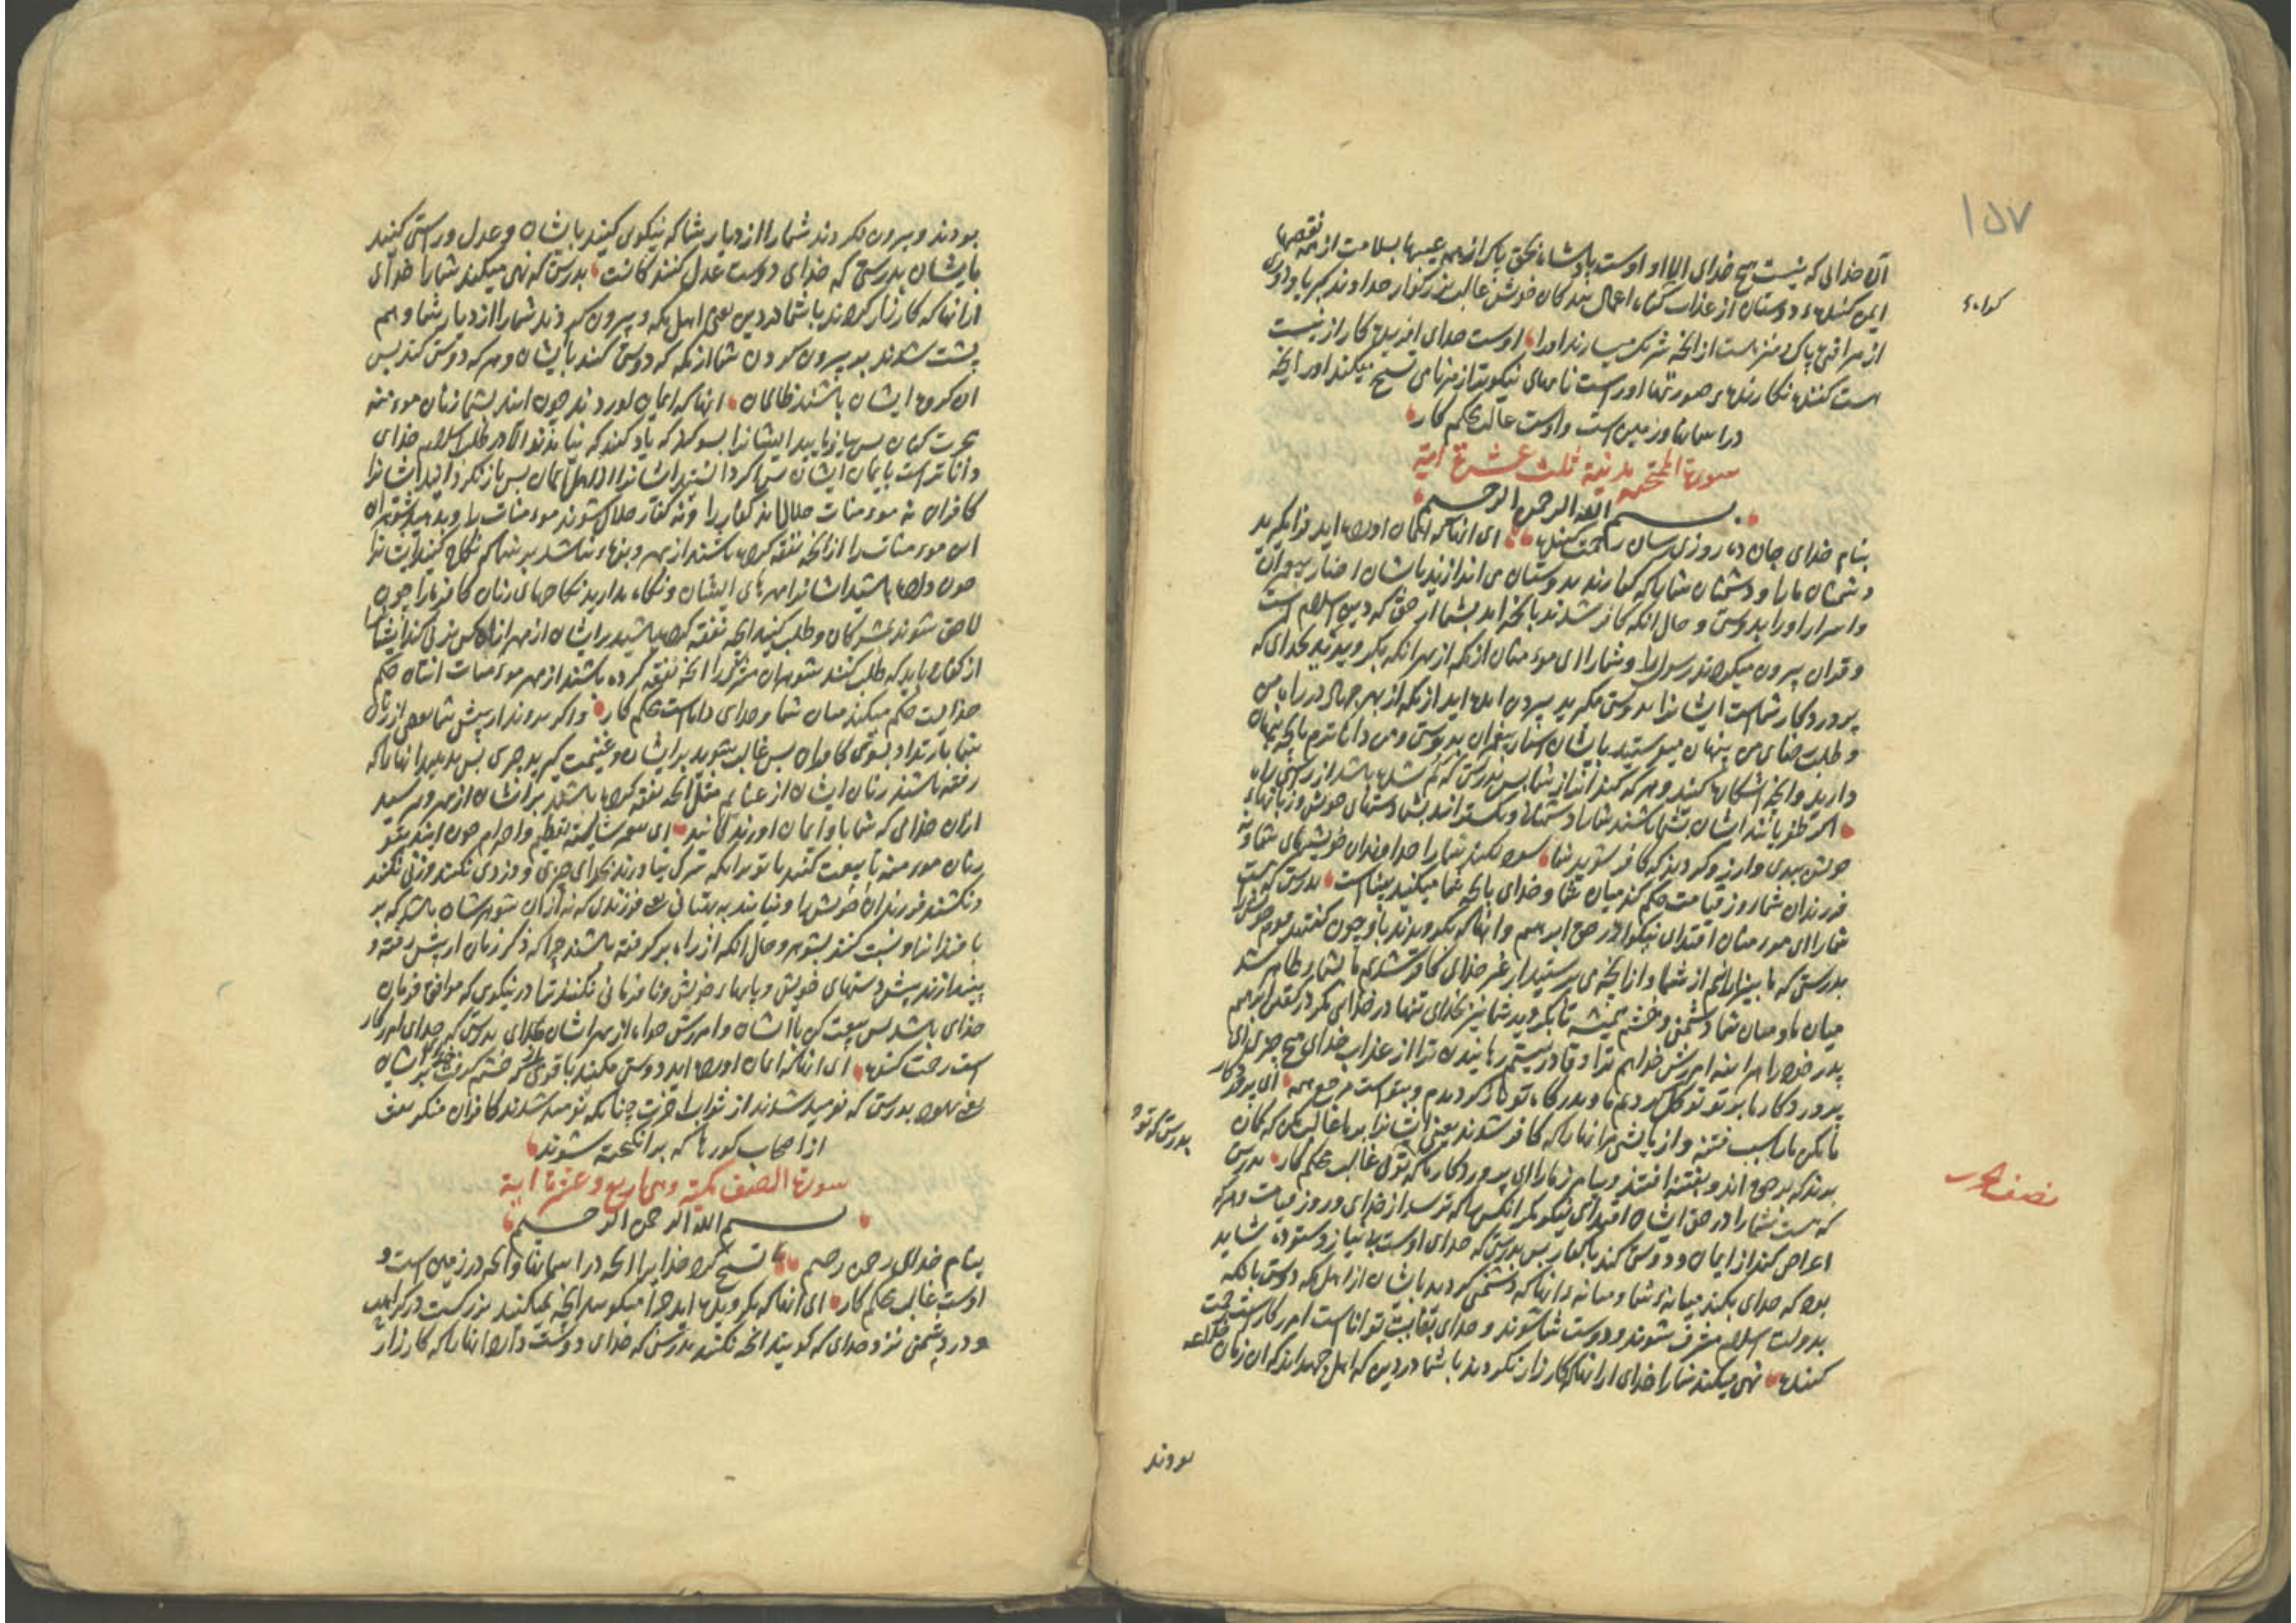 ۱۵۷
آن خدائی که نیست هیچ خدای الا او اوست پادشاه بحق پاک از همه عیبها بسلامت از همه نقصها
ایمن کننده دوستان از عذاب اعمال بندکان خویش غالب بزرکوار خداوند کبریا
از هر پاک و منزهست از آنچه شریک میسازند او را اوست خدای آفریده کار از نیست
هست کننده نکارنده صورتها او راست نامهای نیکو بتنزیه نامی تسبیح میکند او را آنچه
در آسمانها و زمین است و اوست غالب محکم کار
سورة الممتحنه مدنیة ثلث عشرة آیة
بسم الله الرحمن الرحیم
بنام خدای جان ده روزی رسان رحمت کننده ای آنها که ایمان آورده اید فرا مکیرید
دشمنان ما را و دشمنان شما را که کفارند بدوستان می اندازید بایشان اخبار پیغمبران
و اسرار او را بدوستی و حال آنکه کافر شدند بآنچه آمد بشما از حق که دین اسلام است
و قرآن بیرون میکردند رسول را و شما را ای مومنان از مکه از بهر آنکه بکرویدید بخدای که
پروردکار شماست ایشانرا بدوستی مکیرید بیرون آمده اید از مکه از بهر جهاد در راه من
و طلب رضای من پنهان میفرستید بایشان اسرار پیغمبران بدوستی و من داناترم بآنچه پنهان
دارید و آنچه آشکارا کنید و هر که کند آنرا از شما پس بدرستی که کم شده باشد از راستی راه
اکر ظفر یابند ایشان بشما باشند شما را دشمنان و بکسترانند بشما دستهای خویش و زبانهای
خویش ببدی و آرزو کردند که کافر شوید شما سود نکند شما را خداوندان خویشیهای شما و نه
فرزندان شما روز قیامت حکم کند میان شما و خدای بآنچه شما میکنید بیناست بدرستی که هست
شما را ای مومنان اقتدای نیکو در حق ابرهیم و آنها که بکرویدند باو چون کفتند قوم خویش را
بدرستی که ما بیزاریم از شما و از آنچه می پرستید از غیر خدای کافر شدیم بشما و ظاهر شد
میان ما و میان شما دشمنی و خشم همیشه تا بکروید شما نیز بخدای تنها در خدایی مکر در کفتن ابرهیم
پدر خود را هر آینه آمرزش خواهم ترا و قادر نیستم رهانیدن ترا از عذاب خدای هیچ چیزی ای
پروردکار ما بر تو توکل کردیم ما و بدرکاه تو باز کردیدیم و بتو است مرجع همه ای پروردکار
ما مکن ما را سبب فتنه و از پاشی مر آنها را که کافر شوند یعنی ایشانرا بر ما غالب مکن که کمان
برند که بر حق اند و بفتنه افتند و بیامرز ما را ای پروردکار ما که توی غالب محکم کار بدرستی
که هست شما را در حق ایشان اقتدای نیکو مر آنکس را که ترسد از خدای و روز قیامت و هر که
اعراض کند از ایمان و دوستی کند با کفار پس بدرستی که خدای اوست بی نیاز و ستوده شاید
بود که خدای بکند میانهء شما و میانهء آنها که دشمنی کردید بایشان از اهل مکه دوستی بآنکه
بدولت اسلام مشرف شوند و دوست شما شوند و خدای بغایت تواناست آمرزکارست رحمت
کننده نهی نمیکند شما را خدای از آنها که کارزار نکردند با شما در دین که آن زمان
بدرستی که تو
نصف جزء
بودند
بودند و بیرون نکردند شما را از دیار شما که نیکوی کنید بایشان و عدل و راستی کنید
بایشان بدرستی که خدای دوست عدل کنندکانست بدرستی که نهی میکند شما را خدای
از آنها که کارزار کردند با شما در دین یعنی اهل مکه و بیرون کردند شما را از دیار شما و هم
پشت شدند بر بیرون کردن شما از مکه که دوستی کنید بایشان و هر که دوستی کند پس
آن کروه ایشان باشند ظالمان آنها که ایمان آوردند چون آیند بشما زنان مومنه
هجرت کنان پس بیازمایید ایشانرا بسوکند که یاد کنند که نیامدند الا در طلب اسلام خدای
داناترست بایمان ایشان پس اکر دانستید ایشانرا از اهل ایمان پس باز نکردانید ایشانرا
کافران نه مومنات حلال اند کفار را و نه کفار حلال شوند مومنات را و بدهید شوهران
این مومنات را آنچه نفقه کرده باشند از مهر و بزه نباشد بر شما که نکاح کنید ایشانرا
چون داده باشید ایشانرا مهرهای ایشان و نکاه مدارید نکاحهای زنان کافره را چون
لاحق شوند بمشرکان و طلب کنید آنچه نفقه کرده باشید بر ایشان از مهر
از کفار باید که طلب کنند شوهران مشرک را آنچه نفقه کرده باشند از مهر مومنات اینان حکم
خدایست حکم میکند میان شما و خدای داناست محکم کار و اکر بروند از پیش شما بعضی از زنان
شما بارتداد بسوی کافران پس غالب شوید بر ایشان و غنیمت کیرید چیزی پس بدهید آنها را که
رفته باشند زنان ایشان از غنایم مثل آنچه نفقه کرده باشند بر ایشان از مهر و بترسید
از آن خدایی که شما باو ایمان آورندکانید ای پیغمبر شایسته تعظیم و احترام چون آیند بتو
زنان مومنه تا بیعت کنند با تو بر آنکه شرک نیاورند بخدای چیزی و دزدی نکنند و زنی نکنند
و نکشند فرزندان خویش را و نیایند به بهتانی یعنی فرزندی که نه از آن شوهرشان باشد که بر
بافند آنرا و نسبت کنند بشوهر و حال آنکه از راه بر کرفته باشند چرا که ذکر زنان از پیش رفته و
بیندازند پیش دستهای خویش و پایهای خویش و نافرمانی نکنند ترا در نیکوی که موافق فرمان
خدای باشد پس بیعت کن با ایشان و آمرزش خواه از بهر ایشان خدای بدرستی که خدای آمرزکار
است رحمت کننده ای آنها که ایمان آورده اید دوستی مکنید با قومی که خشم کرفت خدای بر ایشان
یعنی یهود بدرستی که نومید شدند از ثواب آخرت چنانکه نومید شدند کافران منکر بعث
از اصحاب کورها که برانکیخته شوند
سورة الصف مکیة وهی اربع وعشرة آیة
بسم الله الرحمن الرحیم
بنام خدای رحمن رحیم تسبیح کرد خدایرا آنچه در آسمانها و آنچه در زمین است و
اوست غالب محکم کار ای آنها که بکرویده اید چرا میکویید آنچه نمیکنید بزرکست
و در دشمنی نزد خدای که کویید آنچه نکنید بدرستی که خدای دوست دارد آنها را که کارزار